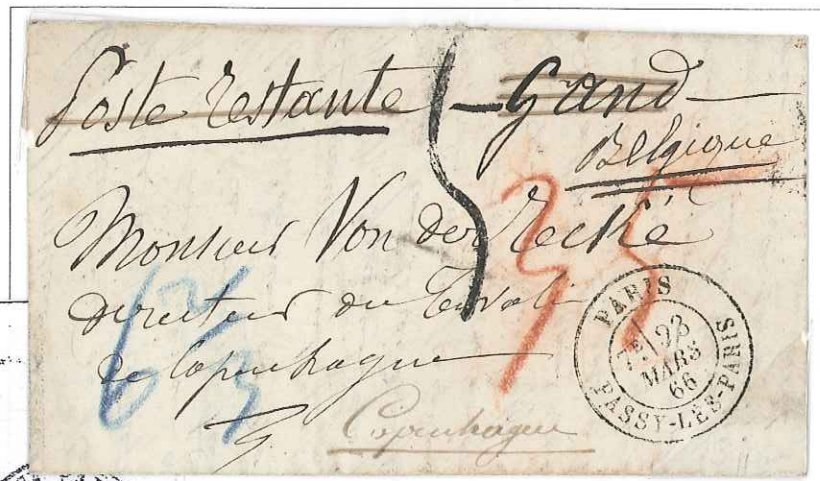 Poste restante – Gand –
Belgique
Monsieur Von der Recké
directeur du Tivoli
de Copenhague
Copenhague
5
35
6 2/3
PARIS
7E 23
MARS
66
PASSY-LÈS-PARIS